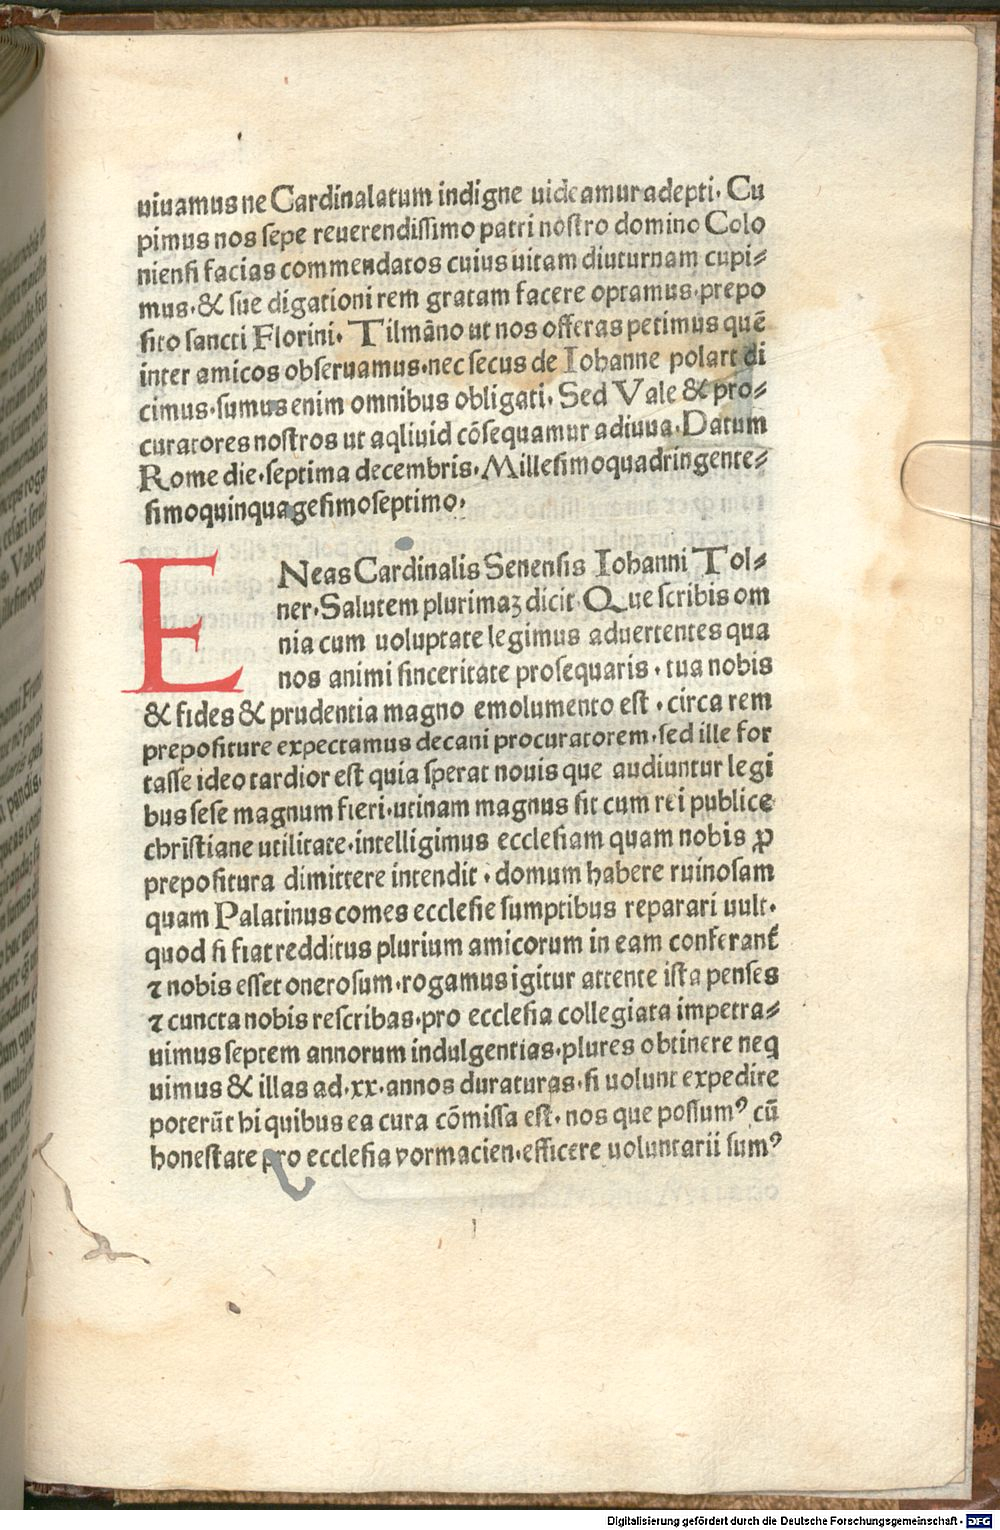 uiuamus ne Cardinalatum indigne uideamur adepti. Cu
pimus nos sepe reuerendissimo patri nostro domino Colo
niensi facias commendatos cuius uitam diuturnam cupi⸗
mus. & sue digationi rem gratam facere optamus. prepo
sito sancti Florini. Tilmāno ut nos offeras petimus quē
inter amicos obseruamus. nec secus de Iohanne polart di
cimus. sumus enim omnibus obligati. Sed Vale & pro⸗
curatores nostros ut aqliuid cōsequamur adiuua. Datum
Rome die. septima decembris. Millesimoquadringente⸗
simoquinquagesimoseptimo.
ENeas Cardinalis Senensis Iohanni Tol⸗
ner. Salutem plurimaꝫ dicit Que scribis om
nia cum uoluptate legimus aduertentes qua
nos animi sinceritate prosequaris. tua nobis
& fides & prudentia magno emolumento est. circa rem
prepositure expectamus decani procuratorem. sed ille for
tasse ideo tardior est quia sperat nouis que audiuntur legi
bus sese magnum fieri. utinam magnus sit cum rei publice
christiane utilitate. intelligimus ecclesiam quam nobis ꝓ
prepositura dimittere intendit. domum habere ruinosam
quam Palatinus comes ecclesie sumptibus reparari uult.
quod si fiat redditus plurium amicorum in eam conferant᷑
⁊ nobis esset onerosum. rogamus igitur attente ista penses
⁊ cuncta nobis rescribas. pro ecclesia collegiata impetra⸗
uimus septem annorum indulgentias. plures obtinere neq
uimus & illas ad. xx. annos duraturas. si uolunt expedire
poterūt hi quibus ea cura cōmissa est. nos que possumꝰ cū
honestate pro ecclesia vormacien. efficere uoluntarii sumꝰ
Digitalisierung gefördert durch die Deutsche Forschungsgemeinschaft - DFG